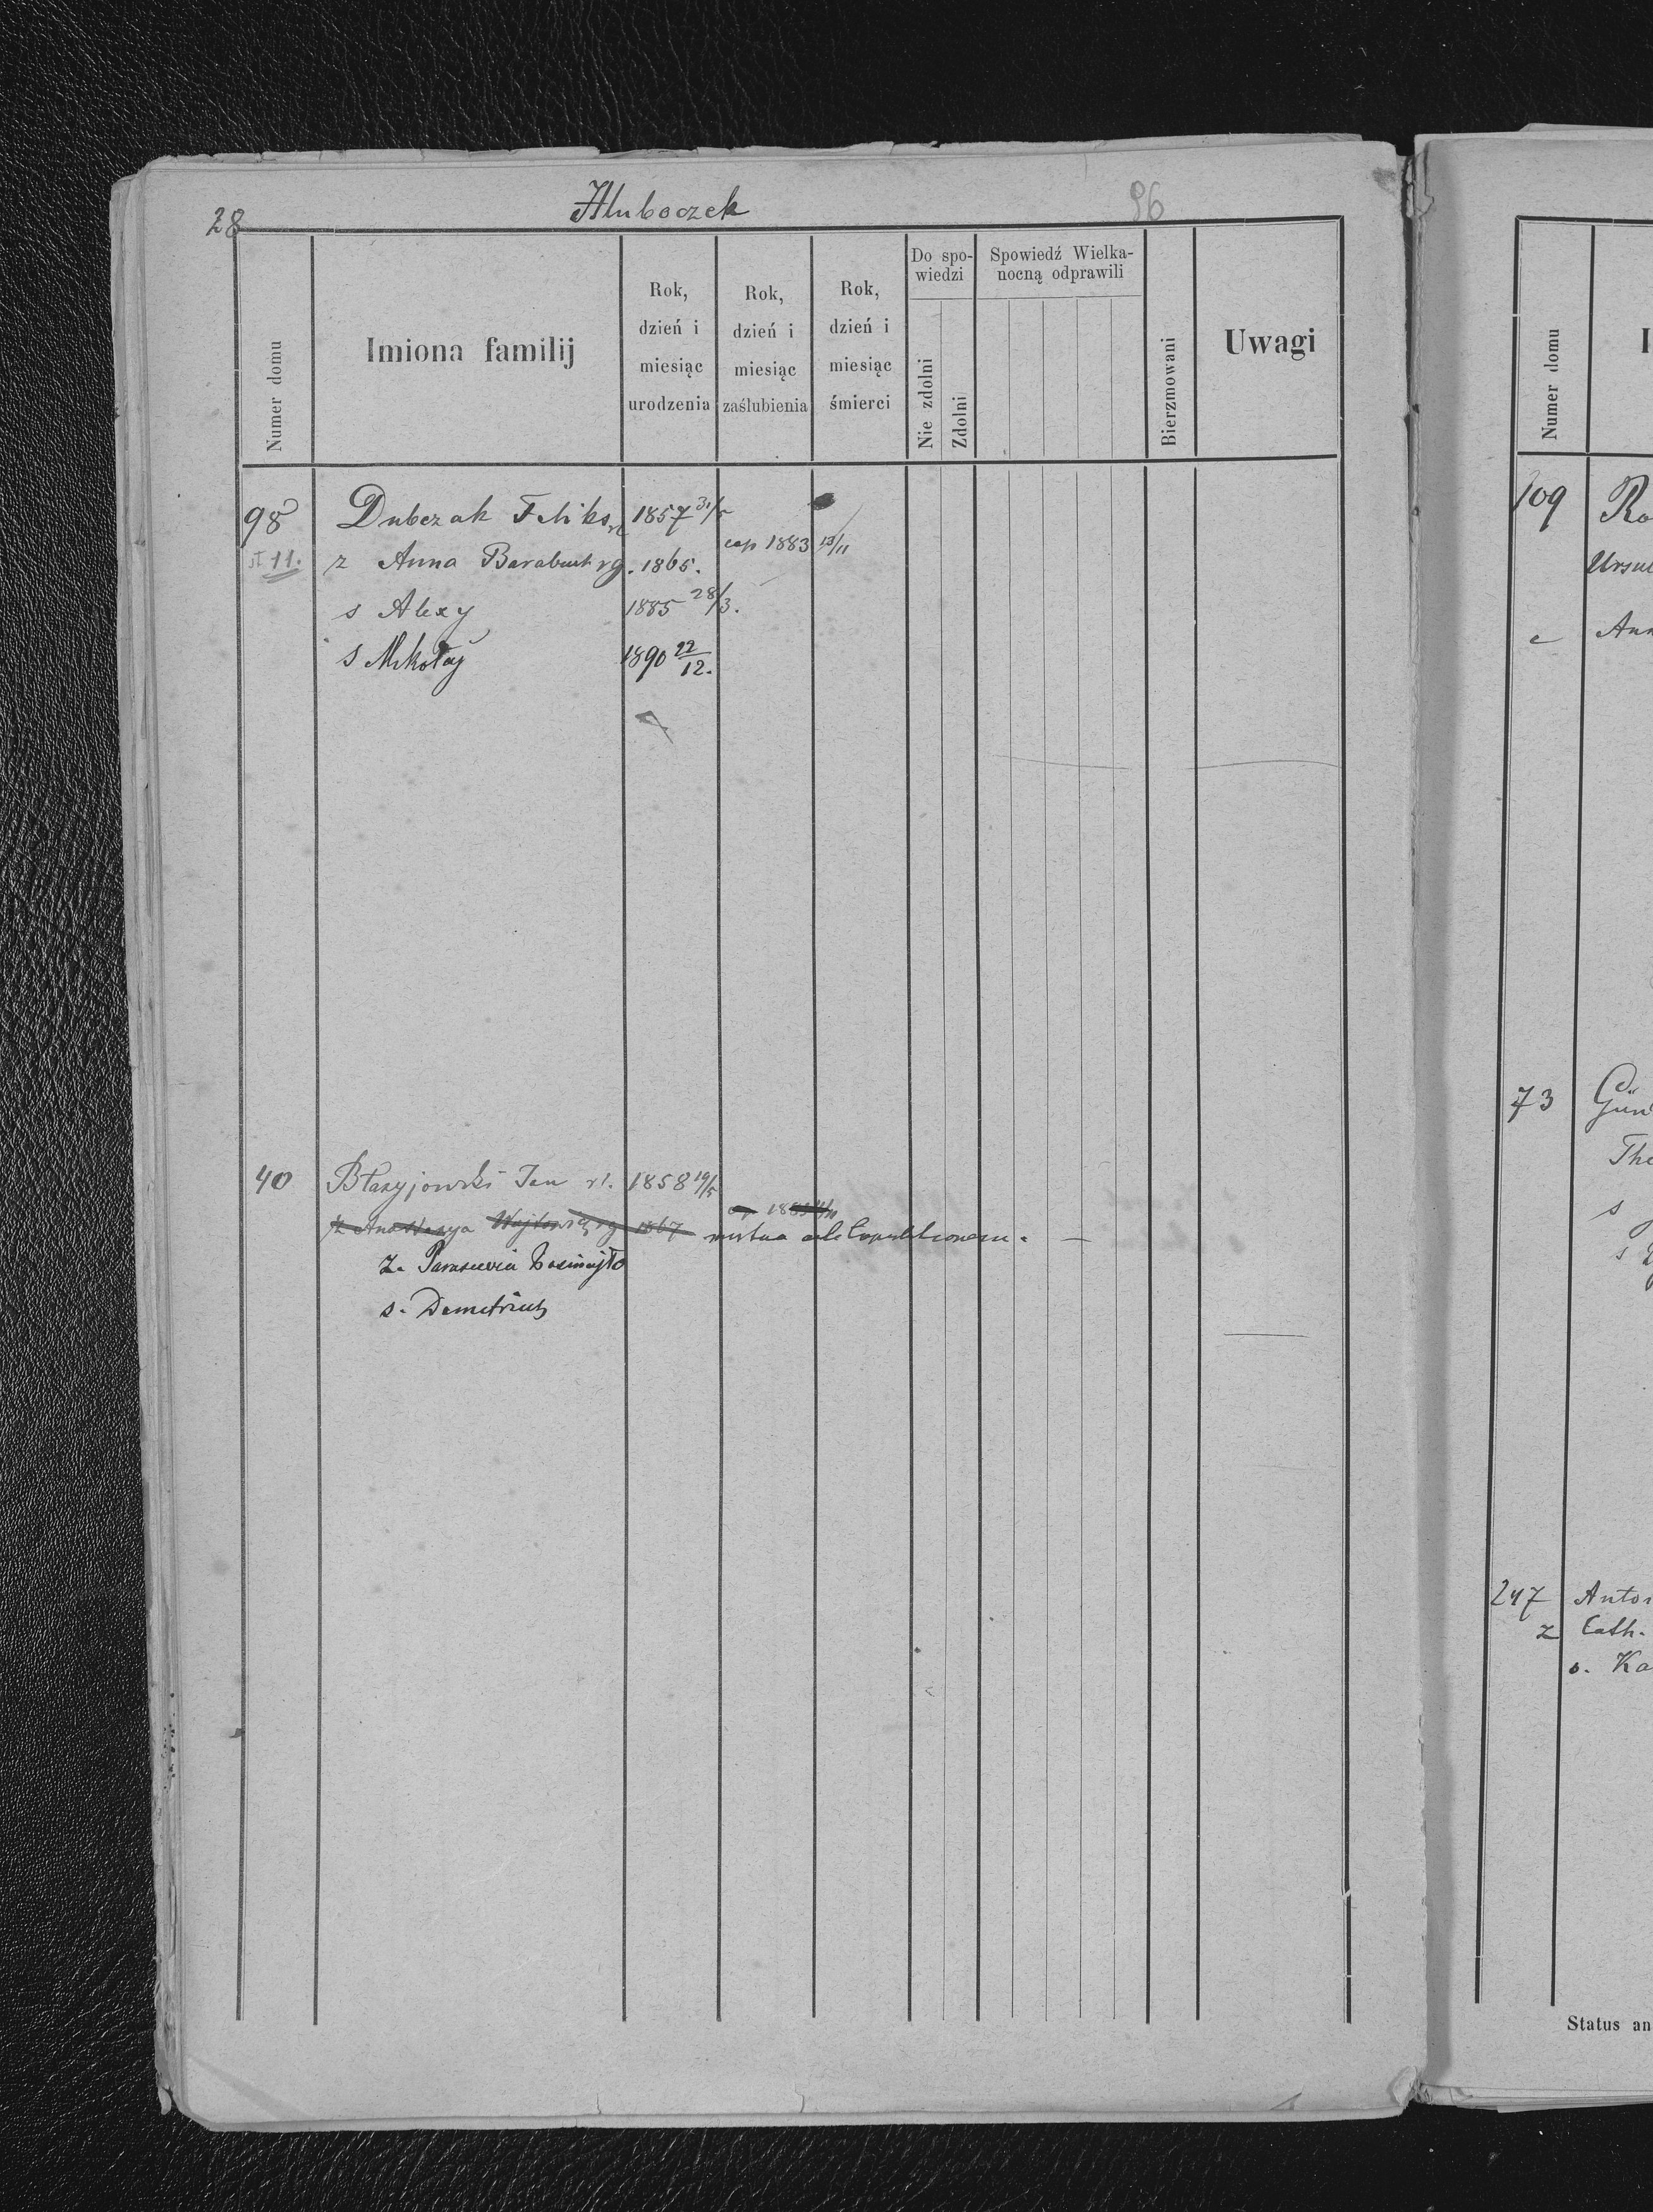 28
Hluboczek
96
Numer domu
Imiona familij
Rok, dzień i miesiąc urodzenia
Rok, dzień i miesiąc zaślubienia
Rok, dzień i miesiąc śmierci
Do spo-
wiedzi
Nie zdolni
Zdolni
Spowiedź Wielka-
nocną odprawili
Bierzmowani
Uwagi
98 Dubczak Feliks rl 1857 31/5
11. z Anna Barabasz rg. 1865. cop 1883 13/11
s Alexy 1885 28/3.
s Mikołaj 1890 22/12.
40 Błazyjowski Jan rl. 1858 19/5
z Anastazya Wojtowicz rg 1867
mortua
z. Parascevia
s. Demetrius
Numer domu
I
109 Ro
Ursul
Ann
73 Gün
The
s
s
247 Anto
z Cath.
s. Ka
Status an